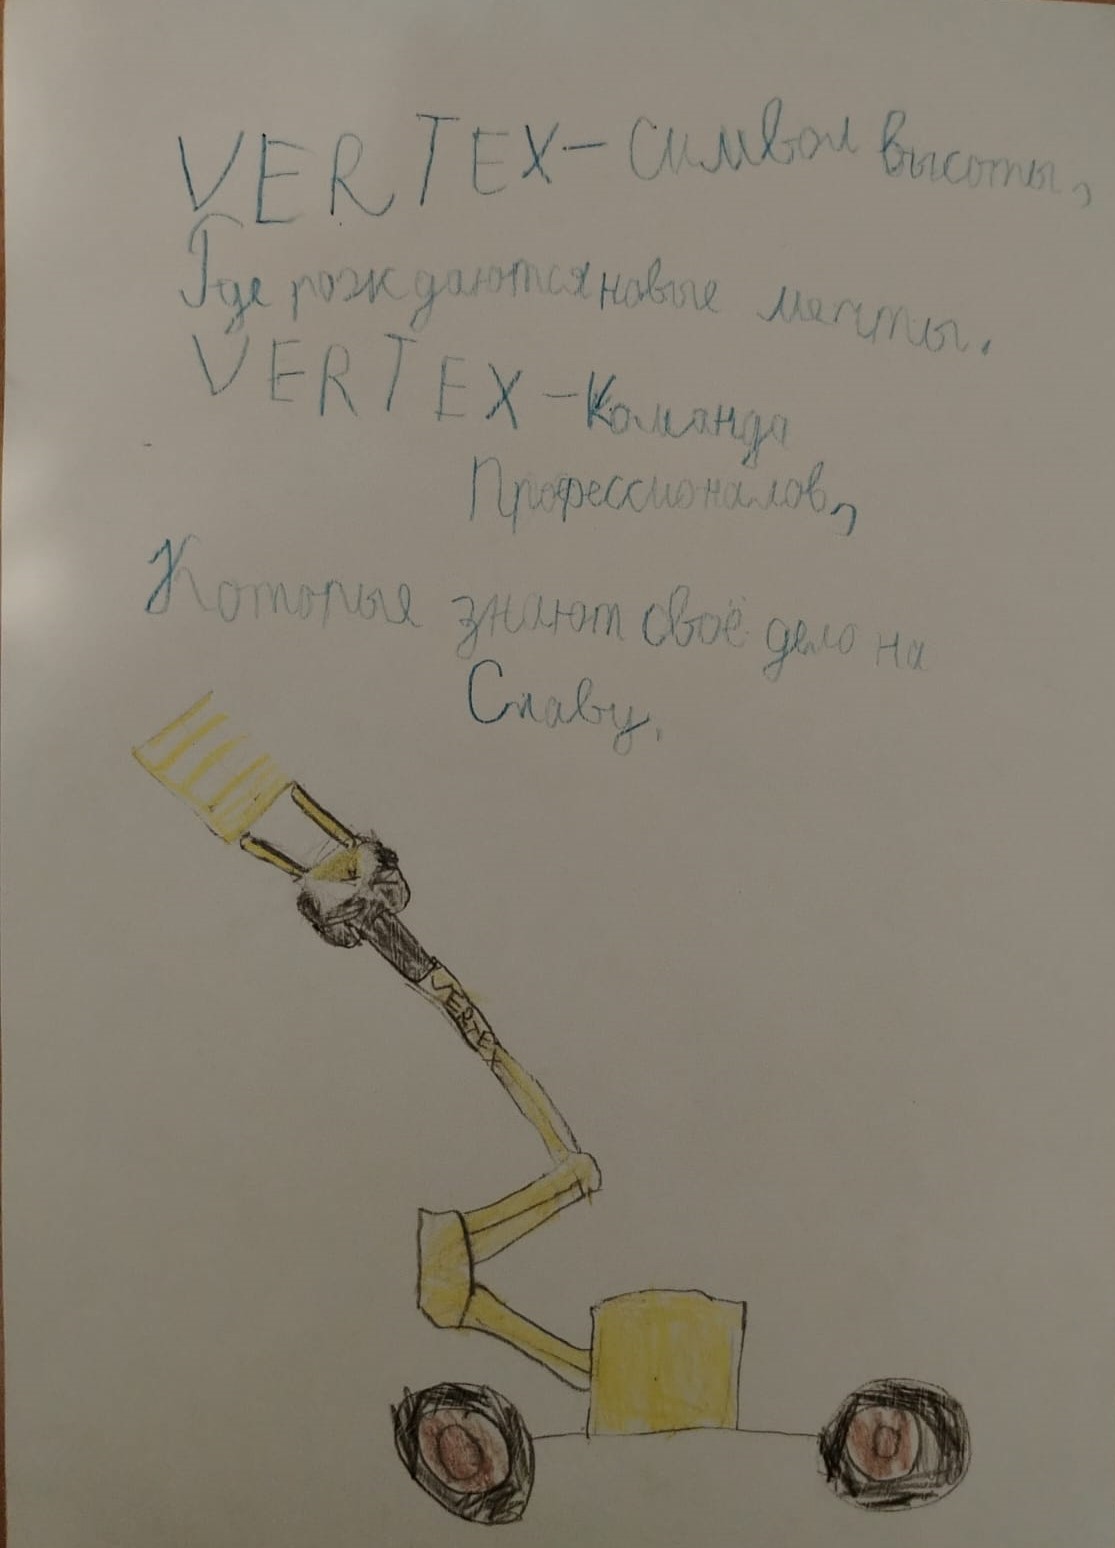 VERTEX – Символ высоты,
Где рождаются новые мечты.
VERTEX – Команда
Профессионалов,
Которые знают своё дело на
Славу.
VERTEX